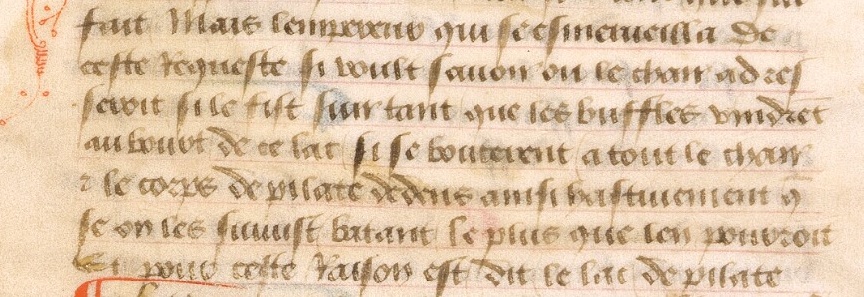 fait Mais lempereur qui se esmerueilla de
ceste Requeste si voult sauoir ou le charr adres
seroit si le fist suir tant que les buffles vindret
au bourt de ce lac si se bouterent a tout le charr
⁊ le corps de pilate dedens ainsi hastiuement q̄
se on les suiuist batant le plus que len pourroit
Et pour ceste Raison est dit le lac de pilate